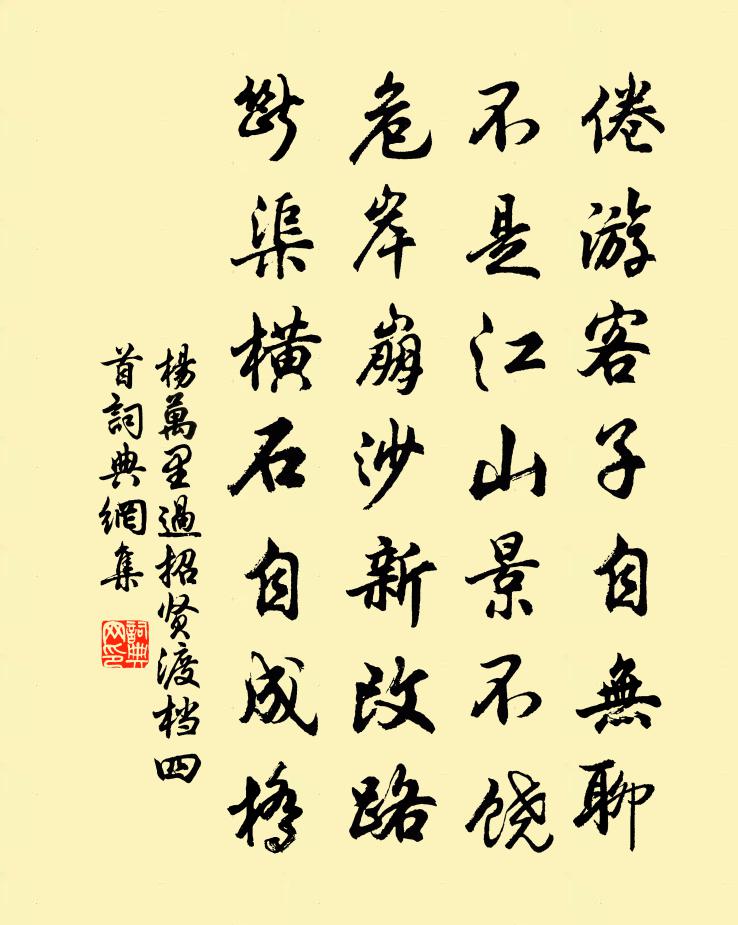 倦游客子自無聊
不是江山景不饶
危岸崩沙新改路
斷渠横石自成橋
楊萬里過招贤渡档四
首詞典網集
詞典網印